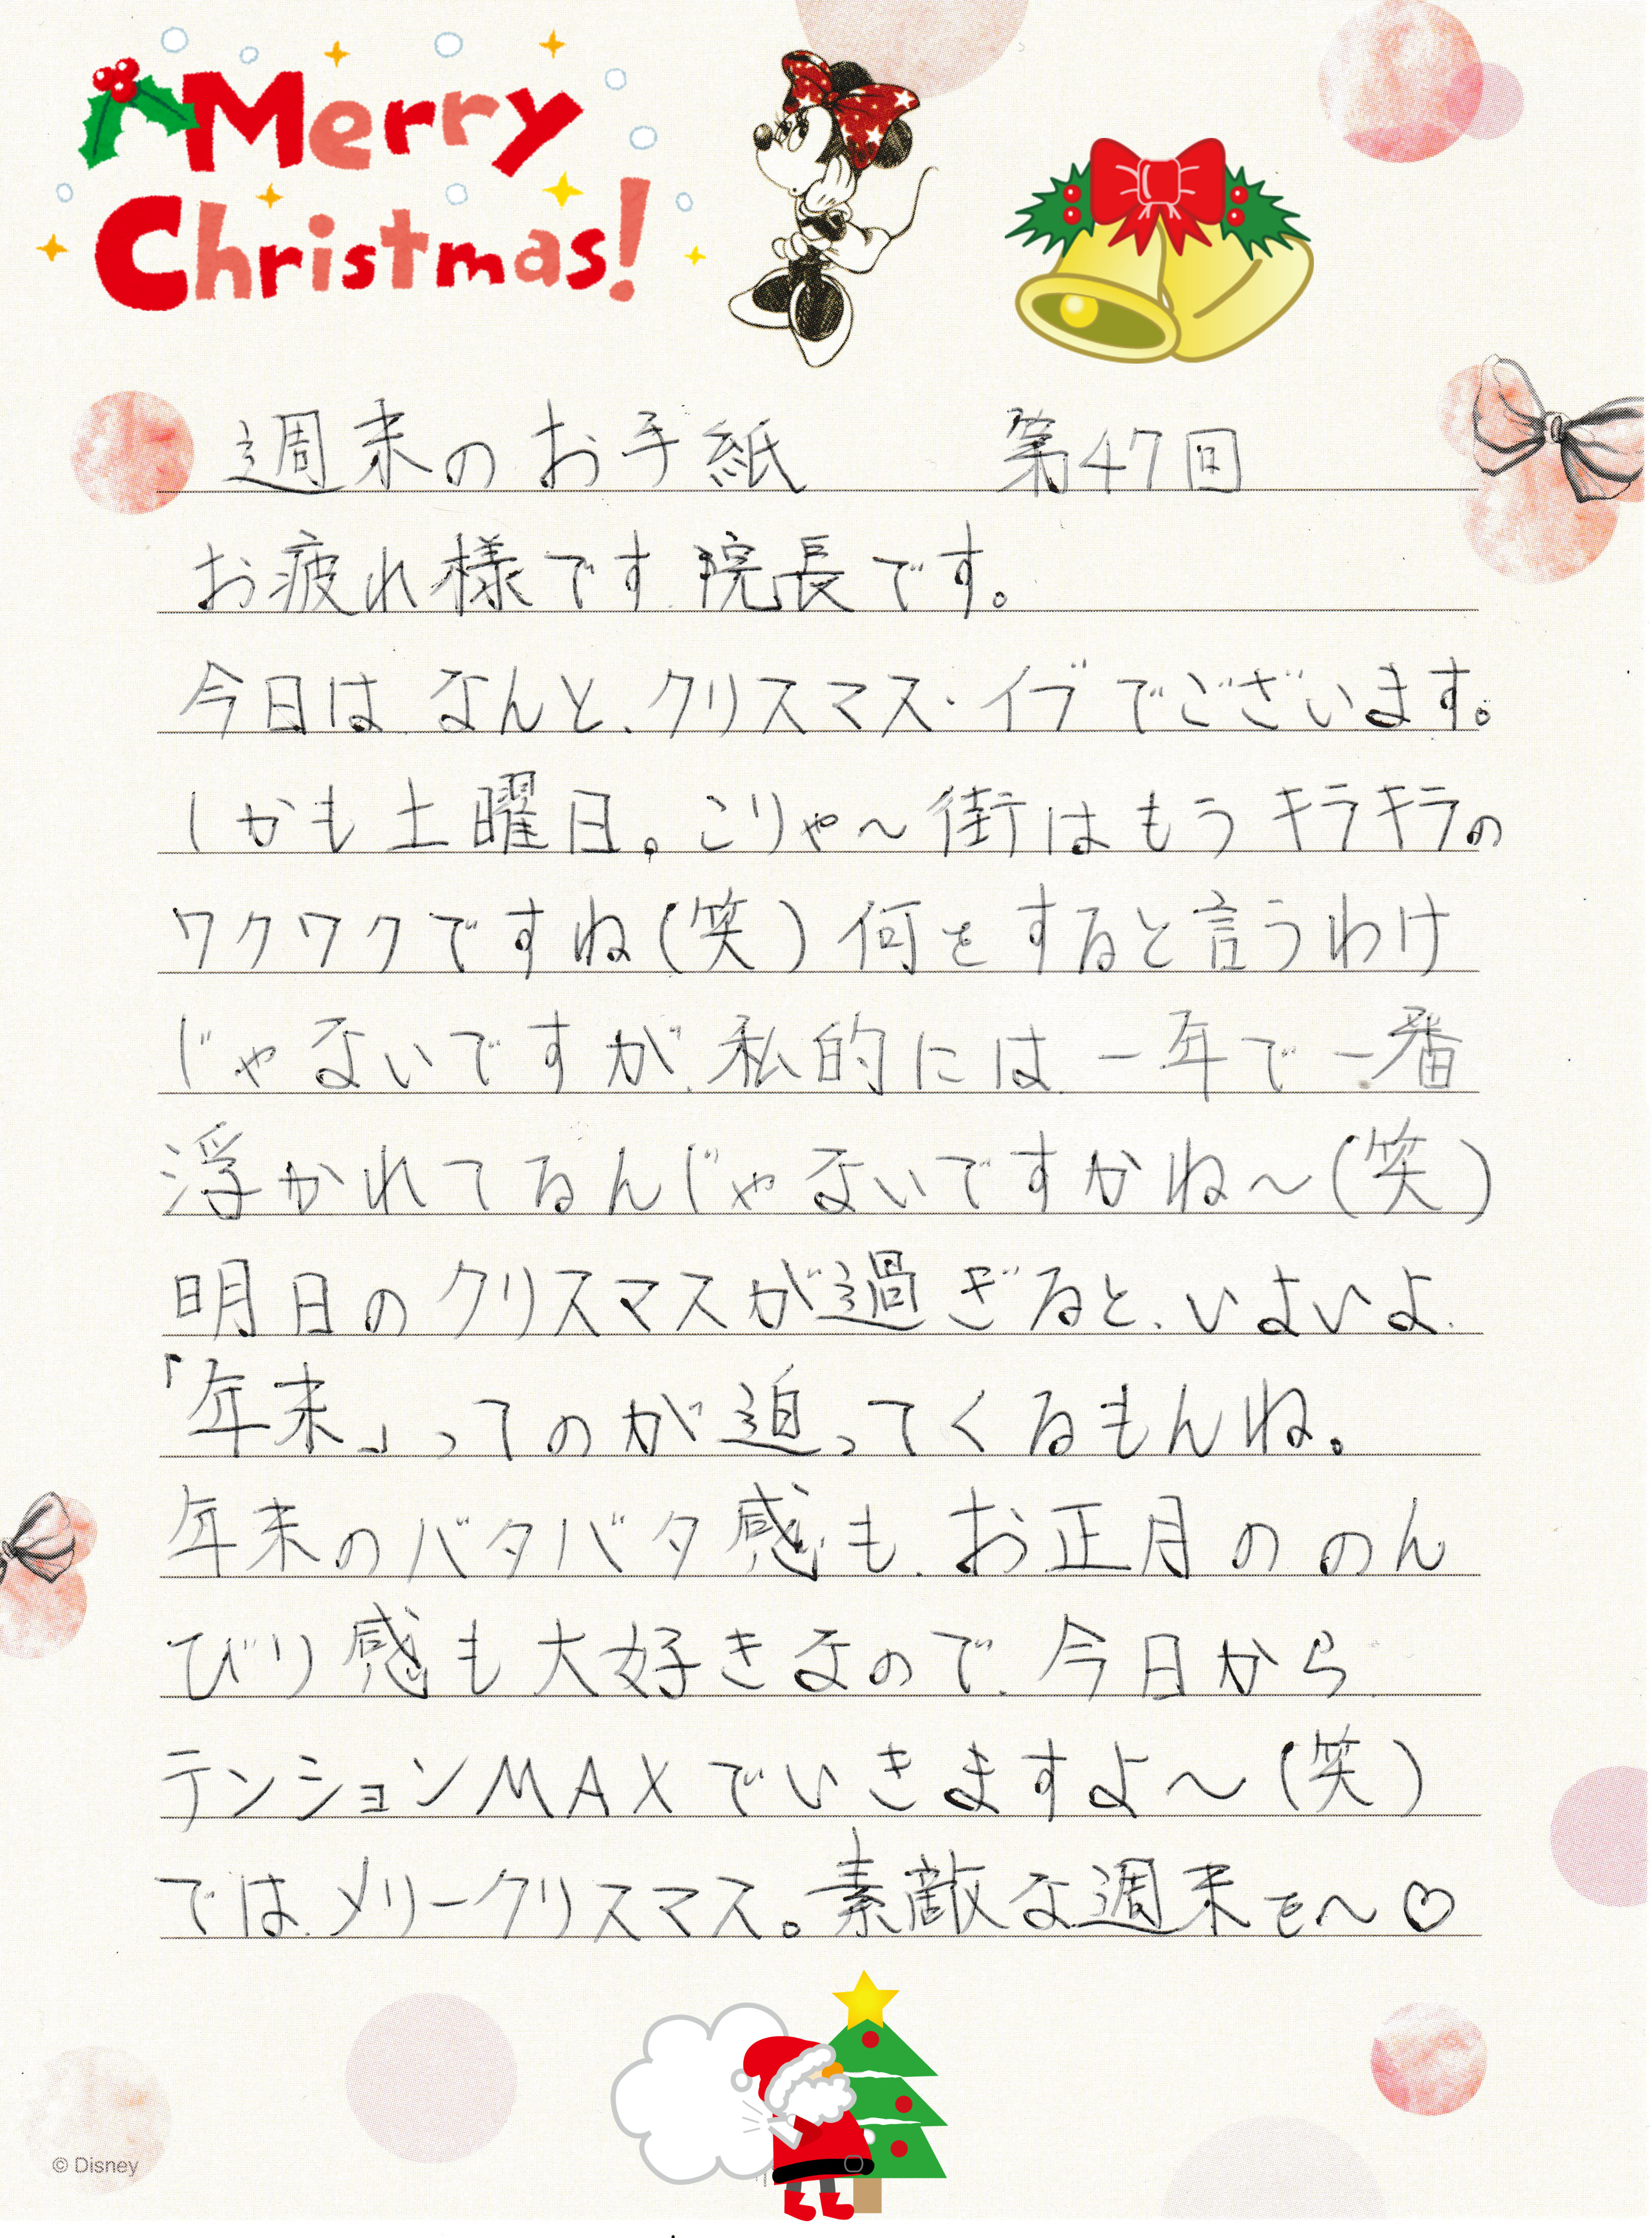 Merry
Christmas!
週末のお手紙 第47回
お疲れ様です、院長です。
今日は、なんと、クリスマス・イブでございます。
しかも土曜日。こりゃ～街はもうキラキラの
ワクワクですね(笑)何をすると言うわけ
じゃないですが、私的には、一年で一番
浮かれてるんじゃないですかね～(笑)
明日のクリスマスが過ぎると、いよいよ、
「年末」ってのが迫ってくるもんね。
年末のバタバタ感も、お正月ののん
びり感も大好きなので、今日から、
テンションMAXでいきますよ～(笑)
では、メリークリスマス。素敵な週末を～♡
© Disney